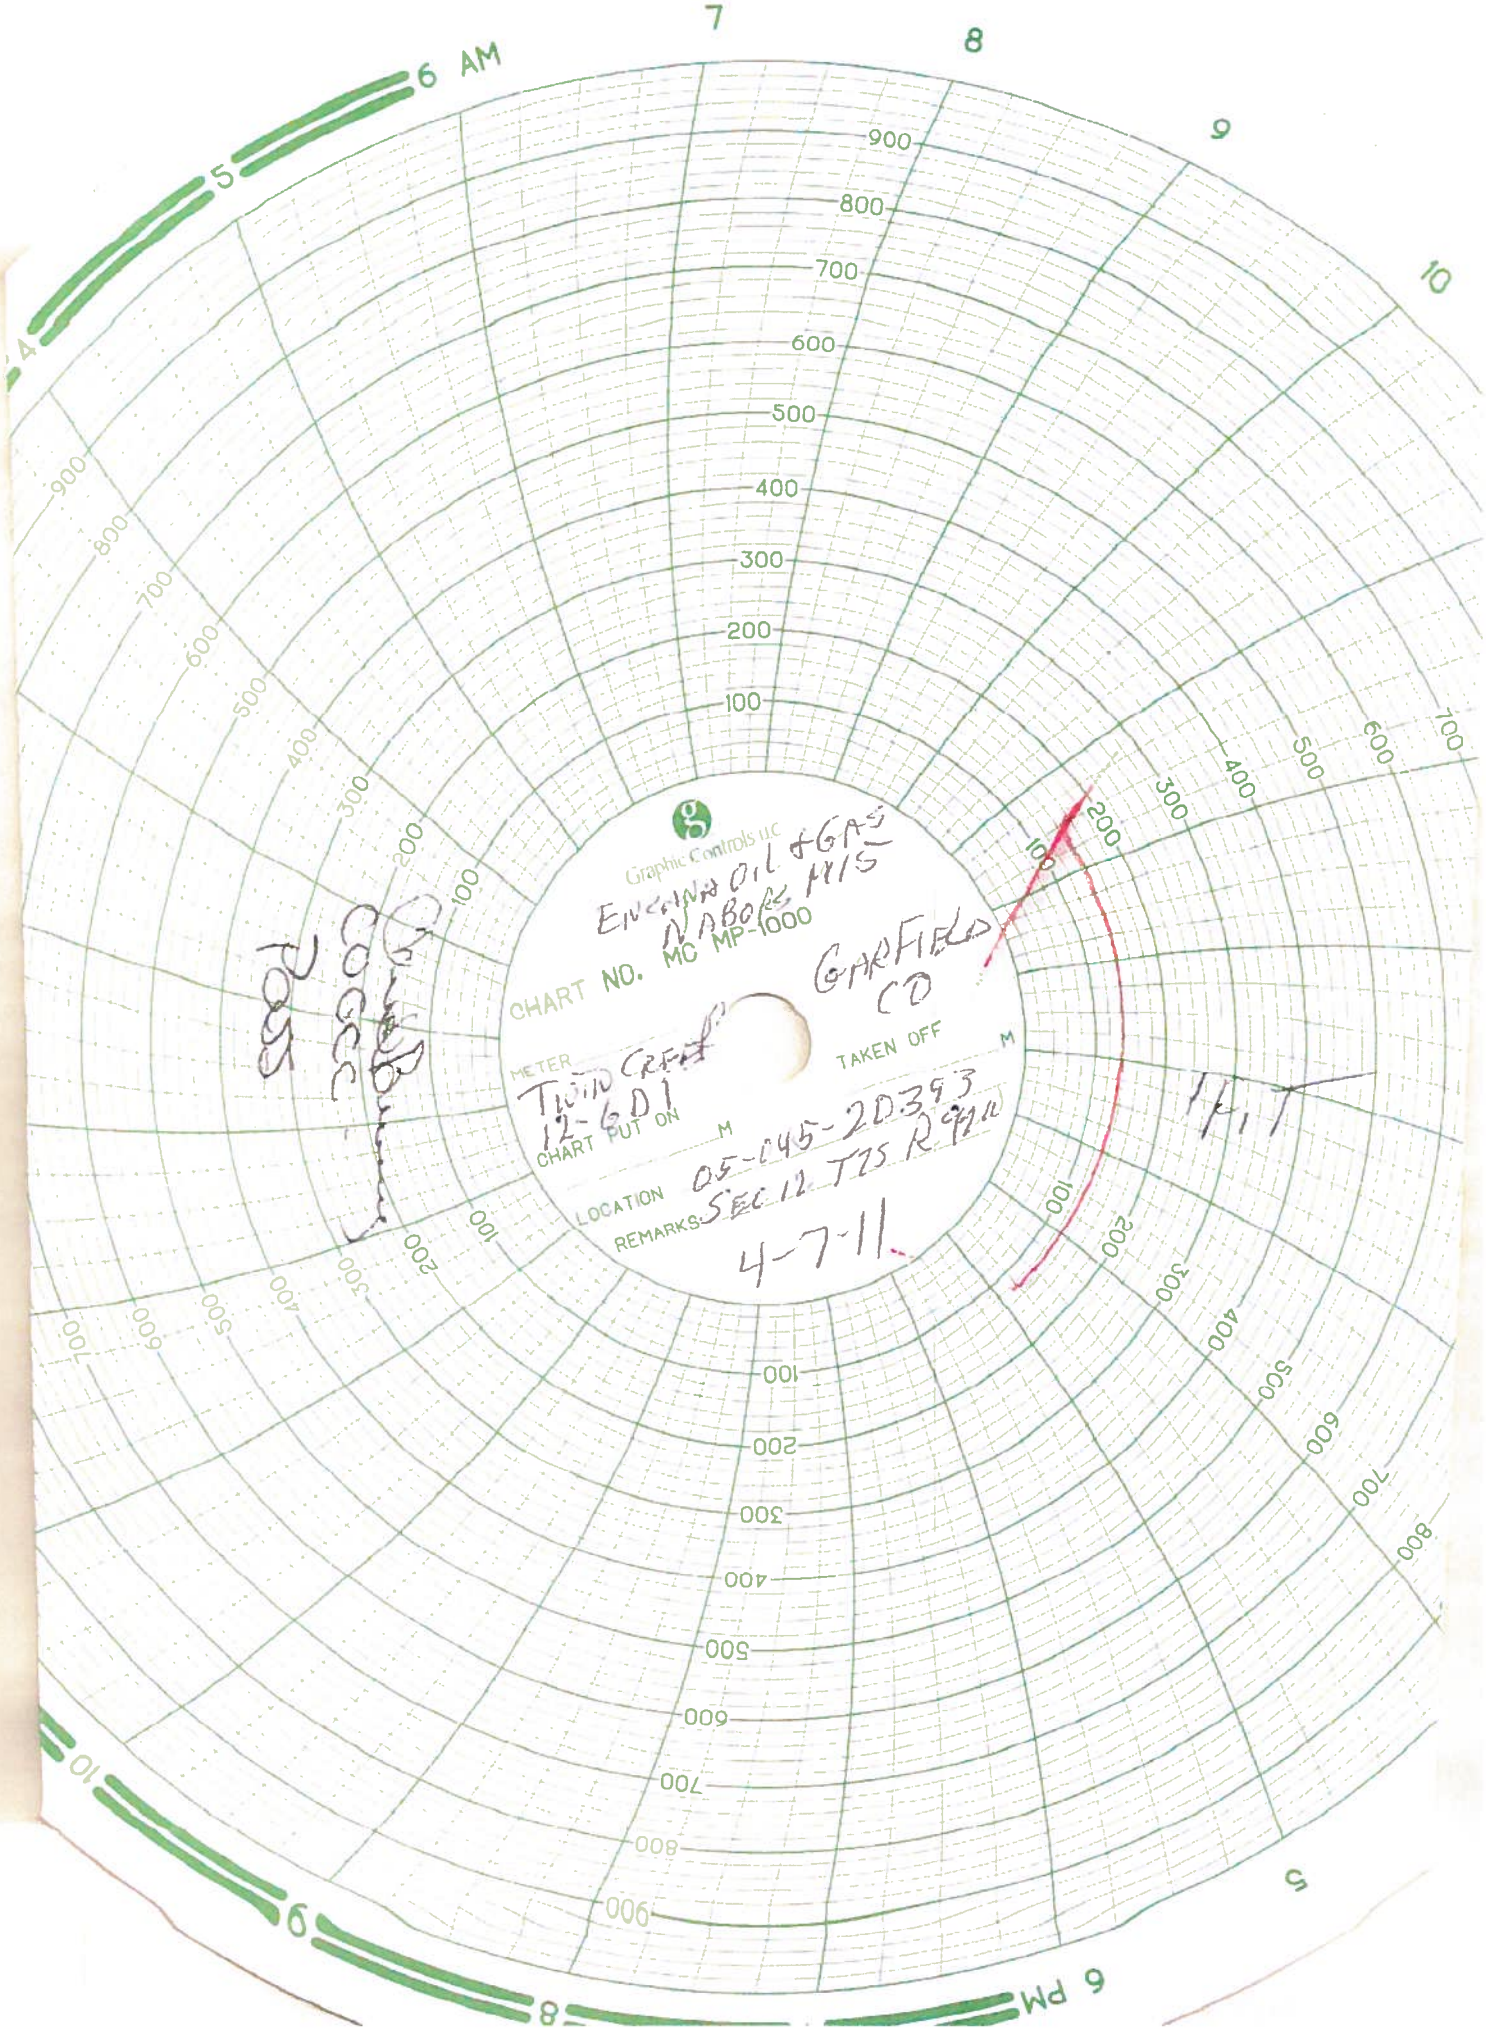 7
8
9
10
6 AM
5
4
900
800
700
600
500
400
300
200
100
900
800
700
600
500
400
300
200
100
100
200
300
400
500
600
700
g
Graphic Controls LLC
ENCANA OIL & GAS
NABORS M15
CHART NO. MC MP-1000
GARFIELD
CO
METER
TAKEN OFF
M
TWIN CREEK
12-6D1
CHART PUT ON
M
LOCATION
05-045-20393
REMARKS
SEC 12 T7S R 92W
4-7-11
COGCC
Pass
1 HIT
100
200
300
400
500
600
700
100
200
300
400
500
600
700
800
100
200
300
400
500
600
700
800
900
10
9
8
6 PM
5